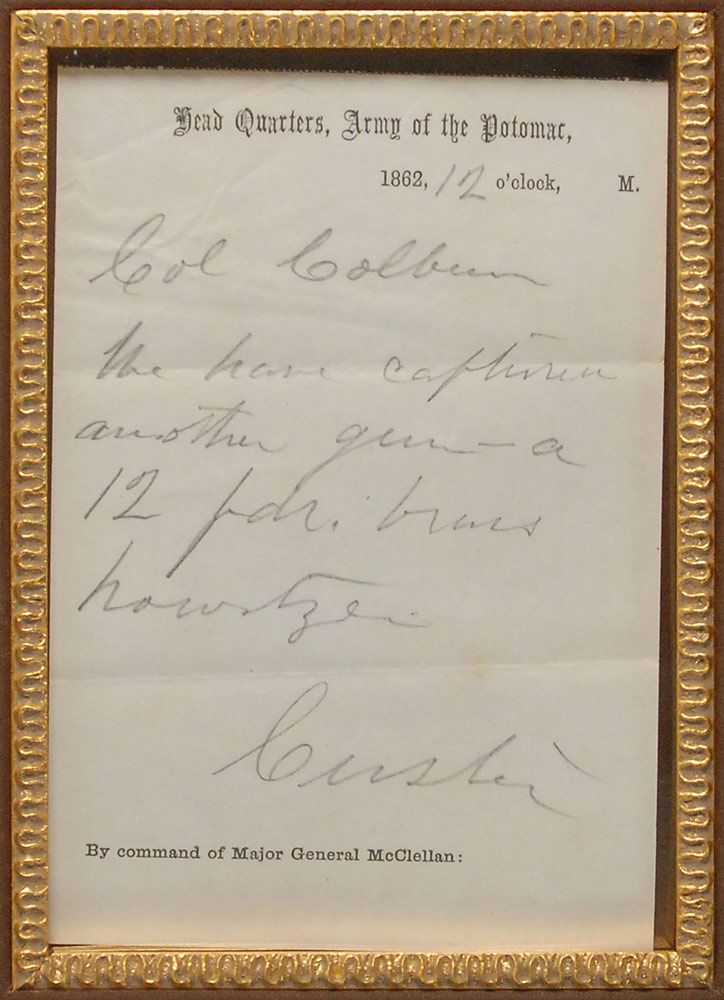 Head Quarters, Army of the Potomac,
1862, 12 o'clock, M.
Col Colburn
We have captured
another gun — a
12 pdr. brass
howitzer
Custer
By command of Major General McClellan: